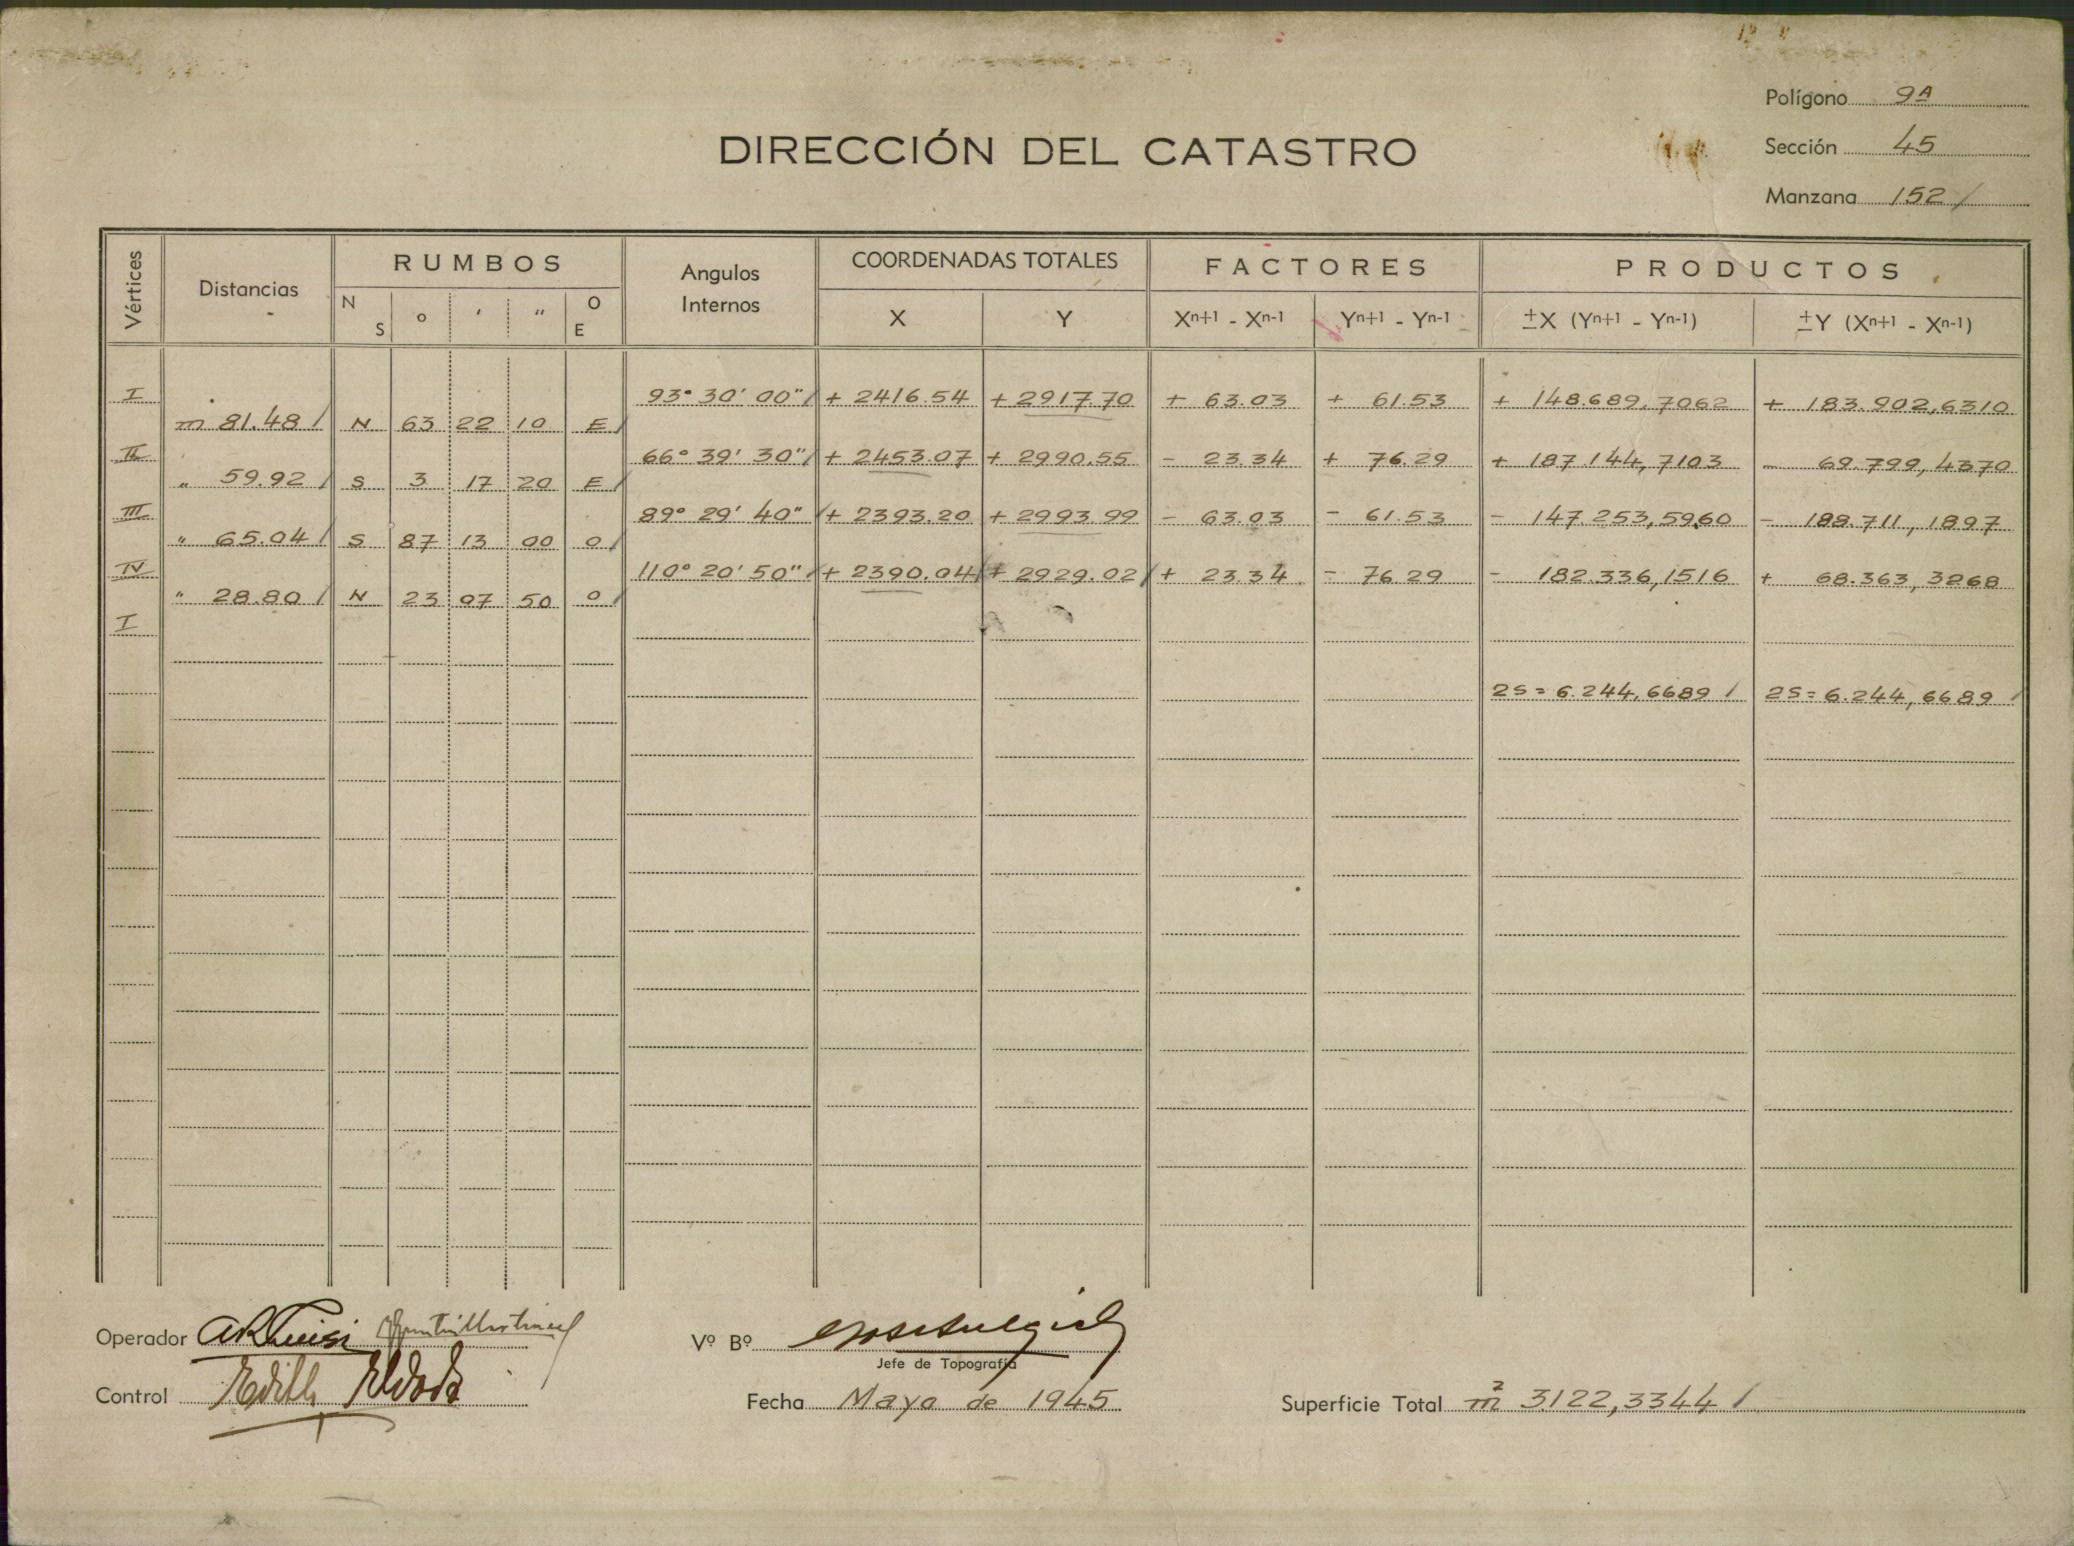 Polígono 9A
DIRECCIÓN DEL CATASTRO
Sección 45
Manzana 152 /
Vértices Distancias RUMBOS Angulos Internos COORDENADAS TOTALES FACTORES PRODUCTOS
N S o ' " O E X Y Xn+1 - Xn-1 Yn+1 - Yn-1 ±X (Yn+1 - Yn-1) ±Y (Xn+1 - Xn-1)
I 93° 30' 00" / + 2416.54 + 2917.70 + 63.03 + 61.53 + 148.689,7062 + 183.902,6310
m 81.48 / N 63 22 10 E /
II 66° 39' 30" / + 2453.07 + 2990.55 - 23.34 + 76.29 + 187.144,7103 - 69.799,4370
" 59.92 / S 3 17 20 E /
III 89° 29' 40" / + 2393.20 + 2993.99 - 63.03 - 61.53 - 147.253,5960 - 188.711,1897
" 65.04 / S 87 13 00 O /
IV 110° 20' 50" / + 2390.04 / + 2929.02 / + 23.34 - 76.29 - 182.336,1516 + 68.363,3268
" 28.80 / N 23 07 50 O /
I
2S = 6.244,6689 / 2S = 6.244,6689 /
Operador Vº Bº
Jefe de Topografía
Control Edith
Fecha Mayo de 1945
Superficie Total m² 3122,3344 /